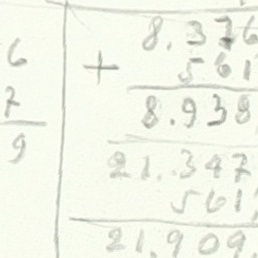 6
7
9
8.376
+ 561
8.938
21.347
561,
21.909,